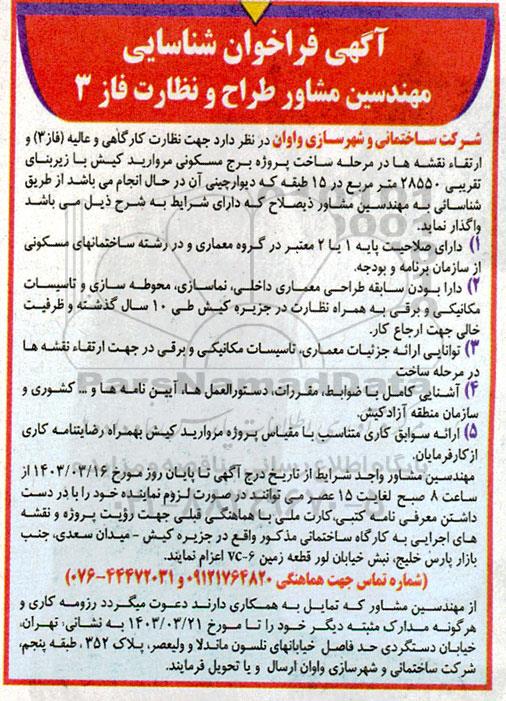 آگهی فراخوان شناسایی
مهندسین مشاور طراح و نظارت فاز ۳
شرکت ساختمانی و شهرسازی واوان در نظر دارد جهت نظارت کارگاهی و عالیه (فاز۳) و
ارتقاء نقشه ها در مرحله ساخت پروژه برج مسکونی مروارید کیش با زیربنای
تقریبی ۲۸۵۵۰ متر مربع در ۱۵ طبقه که دیوارچینی آن در حال انجام می باشد از طریق
شناسائی به مهندسین مشاور ذیصلاح که دارای شرایط به شرح ذیل می باشد
واگذار نماید.
۱) دارای صلاحیت پایه ۱ یا ۲ معتبر در گروه معماری و در رشته ساختمانهای مسکونی
از سازمان برنامه و بودجه.
۲) دارا بودن سابقه طراحی معماری داخلی، نماسازی، محوطه سازی و تاسیسات
مکانیکی و برقی به همراه نظارت در جزیره کیش طی ۱۰ سال گذشته و ظرفیت
خالی جهت ارجاع کار.
۳) توانایی ارائه جزئیات معماری، تاسیسات مکانیکی و برقی در جهت ارتقاء نقشه ها
در مرحله ساخت
۴) آشنایی کامل با ضوابط، مقررات، دستورالعمل ها، آیین نامه ها و ... کشوری و
سازمان منطقه آزاد کیش.
۵) ارائه سوابق کاری متناسب با مقیاس پروژه مروارید کیش بهمراه رضایتنامه کاری
از کارفرمایان.
مهندسین مشاور واجد شرایط از تاریخ درج آگهی تا پایان روز مورخ ۱۴۰۳/۰۳/۱۶ از
ساعت ۸ صبح لغایت ۱۵ عصر می توانند در صورت لزوم نماینده خود را با در دست
داشتن معرفی نامه کتبی، کارت ملی با هماهنگی قبلی جهت رؤیت پروژه و نقشه
های اجرایی به کارگاه ساختمانی مذکور واقع در جزیره کیش - میدان سعدی، جنب
بازار پارس خلیج، نبش خیابان لور قطعه زمین VC-۶ اعزام نمایند.
(شماره تماس جهت هماهنگی ۰۹۱۲۱۷۶۴۸۲۰ و ۴۴۴۷۲۰۳۱-۰۷۶)
از مهندسین مشاور که تمایل به همکاری دارند دعوت میگردد رزومه کاری و
هرگونه مدارک مثبته دیگر خود را تا مورخ ۱۴۰۳/۰۳/۲۱ به نشانی: تهران،
خیابان دستگردی حد فاصل خیابانهای نلسون ماندلا و ولیعصر، پلاک ۳۵۲، طبقه پنجم،
شرکت ساختمانی و شهرسازی واوان ارسال و یا تحویل فرمایند.
ParsNamadData